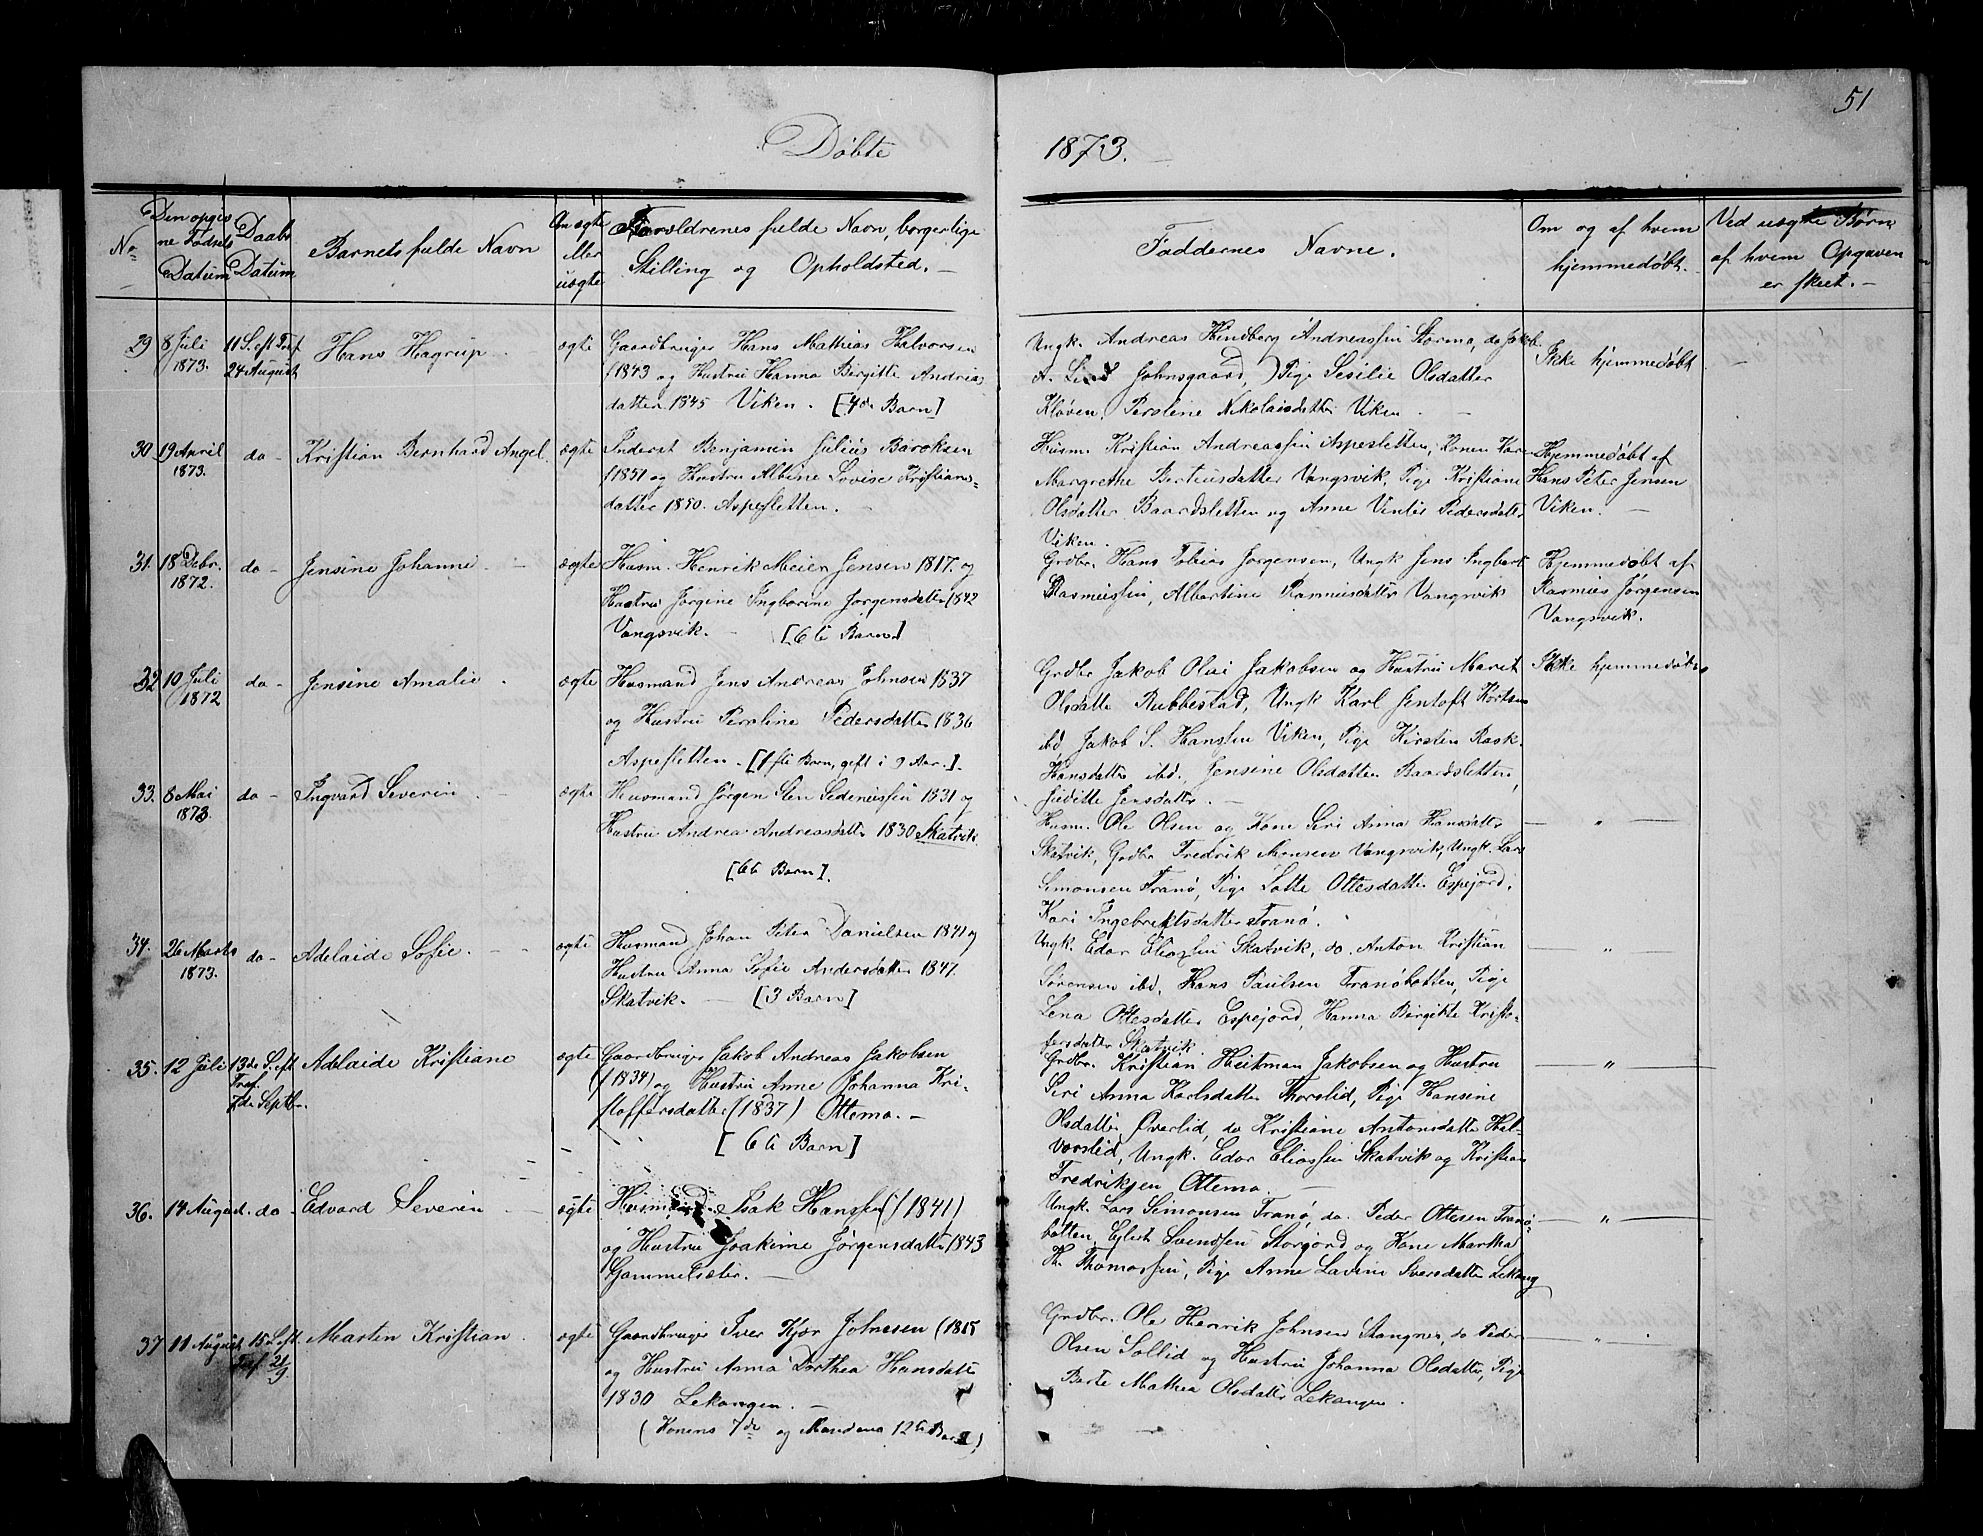 51
Døbte 1873.
No
Den opgiv
ne Fødsels
Datum
Daabs
Datum
Barnets fulde Navn
Om ægte
eller
uægte
Forældrenes fulde Navn, borgerlige
Stilling og Opholdsted.
Faddernes Navne.
Om og af hvem
hjemmedøbt.
Ved uægte Børn
af hvem Opgaven
er skeet.
29 8 Juli 11 S. eft Tref
1873. 24 August
Hans Hagrup
ægte
Gaardbruger Hans Mathias Halvorsen
1843 og Hustru Hanna Birgitte Andreas
datter 1845 Viken. [4de Barn]
Ungk. Andreas Hindberg Andreassen Stormo, do Jakob
A. Johnsgaard, Pige Sesilie Olsdatter
Kløven, Peroline Nikolaisdatter Viken.
Ikke hjemmedøbt
30 19 April
1873.
do
Kristian Bernhard Angel.
ægte
Inderst Benjamin Julius Baroksen
1851 og Hustru Albine Lovise Kristians-
datter 1850. Aspesletten.
Husm. Kristian Andreassen Aspesletten, Konen Kar
Margrethe Berteusdatter Vangsvik, Pige Kristiane
Olsdatter Baardsletten og Anne Pedersdatter
Viken.
Hjemmedøbt af
Hans Peter Jensen
Viken.
31. 18 Debr.
1872.
do
Jensine Johanne
ægte
Husm. Henrik Meier Jensen 1817. og
Hustru Jørgine Ingborine Jørgensdatter 1842
Vangsvik. [6te Barn]
Grdbr. Hans Tobias Jørgensen, Ungk Jens Ingbart
Rasmussen, Albertine Rasmusdatter Vangsvik
Hjemmedøbt af
Rasmus Jørgensen
Vangsvik.
32 10 Juli
1872
do
Jensine Amalie
ægte
Husmand Jens Andreas Johnsen 1837
og Hustru Peroline Pedersdatter 1836
Aspesletten. [1ste Barn, gift i 9 Aar.].
Grdbr Jakob Olai Jakobsen og Hustru Maret
Olsdatte Rubbestad, Ungk Karl Jentoft Kortsen
ibd Jakob S. Hanssen Viken, Pige Kirsten Rask
Hansdatter ibd., Jensine Olsdatter Baardsletten,
Jensdatter.
Ikke hjemmedøbt
33. 8 Mai
1873.
do
Ingvard Severin
ægte
Husmand Jørgen Sten Pedenussen 1831 og
Hustru Andrea Andreasdatter 1830 Skatvik
[6te Barn].
Husm. Ole Olsen og Kone Siri Anna Hansdatter
Skatvik, Grdbr Fredrik Monsen Vangsvik, Ungk. Lars
Simonsen Tranø, Pige Lotte Ottesdatter Espejord,
Kari Ingebriktsdatter Tranø.
"
34. 26 Marts
1873.
do
Adelaide Sofie.
ægte
Husmand Johan Peter Danielsen 1841 og
Hustru Anna Sofie Andersdatter 1847.
Skatvik. [3 Barn]
Ungk. Edor Eliassen Skatvik, do. Anton Kristian
Sørensen ibd, Hans Paulsen Tranøbotten, Pige
Lena Ottesdatter Espejord, Hanna Birgitte Kristo-
fersdatter Skatvik
"
35. 12 Juli 13de S. eft
Tref.
7de Septbr.
Adelaide Kristiane
ægte
Gaardbruger Jakob Andreas Jakobsen
(1834) og Hustru Anne Johanna Kri-
stoffersdatter (1837) Ottemo.
[6te Barn]
Grdbr. Kristian Heitman Jakobsen og Hustru
Siri Anna Karlsdatter Thorslid, Pige Hansine
Olsdatter Øverlid, do Kristiane Antonsdatter Hal-
vorslid, Ungk. Edor Eliassen Skatvik og Kristian
Fredriksen Ottemo.
"
36. 14 August. do
Edvard Severin
ægte
Husmand Isak Hanssen (1841)
og Hustru Joakime Jørgensdatter 1843
Gammelsæter.
Ungk. Lars Simonsen Tranø, do. Peder Ottesen Tranø
botten, Eglet Svendsen Storjord og Kone Martha
H. Thomassen, Pige Anne Lavine Iversdatter Lekang
"
37 11 August 15 S. eft.
Tref. 21/9
Morten Kristian
ægte
Gaardbruger Iver Kjær Johnsen (1815
og Hustru Anna Dorthea Hansdatter
1830 Lekangen.
(Konens 7de og Mandens 12te Barn)
Grdbr. Ole Henrik Johnsen Stangnes, do Peder
Olsen Sollid og Hustru Johanna Olsdatter, Pige
Berte Mathea Olsdatter Lekangen.
"